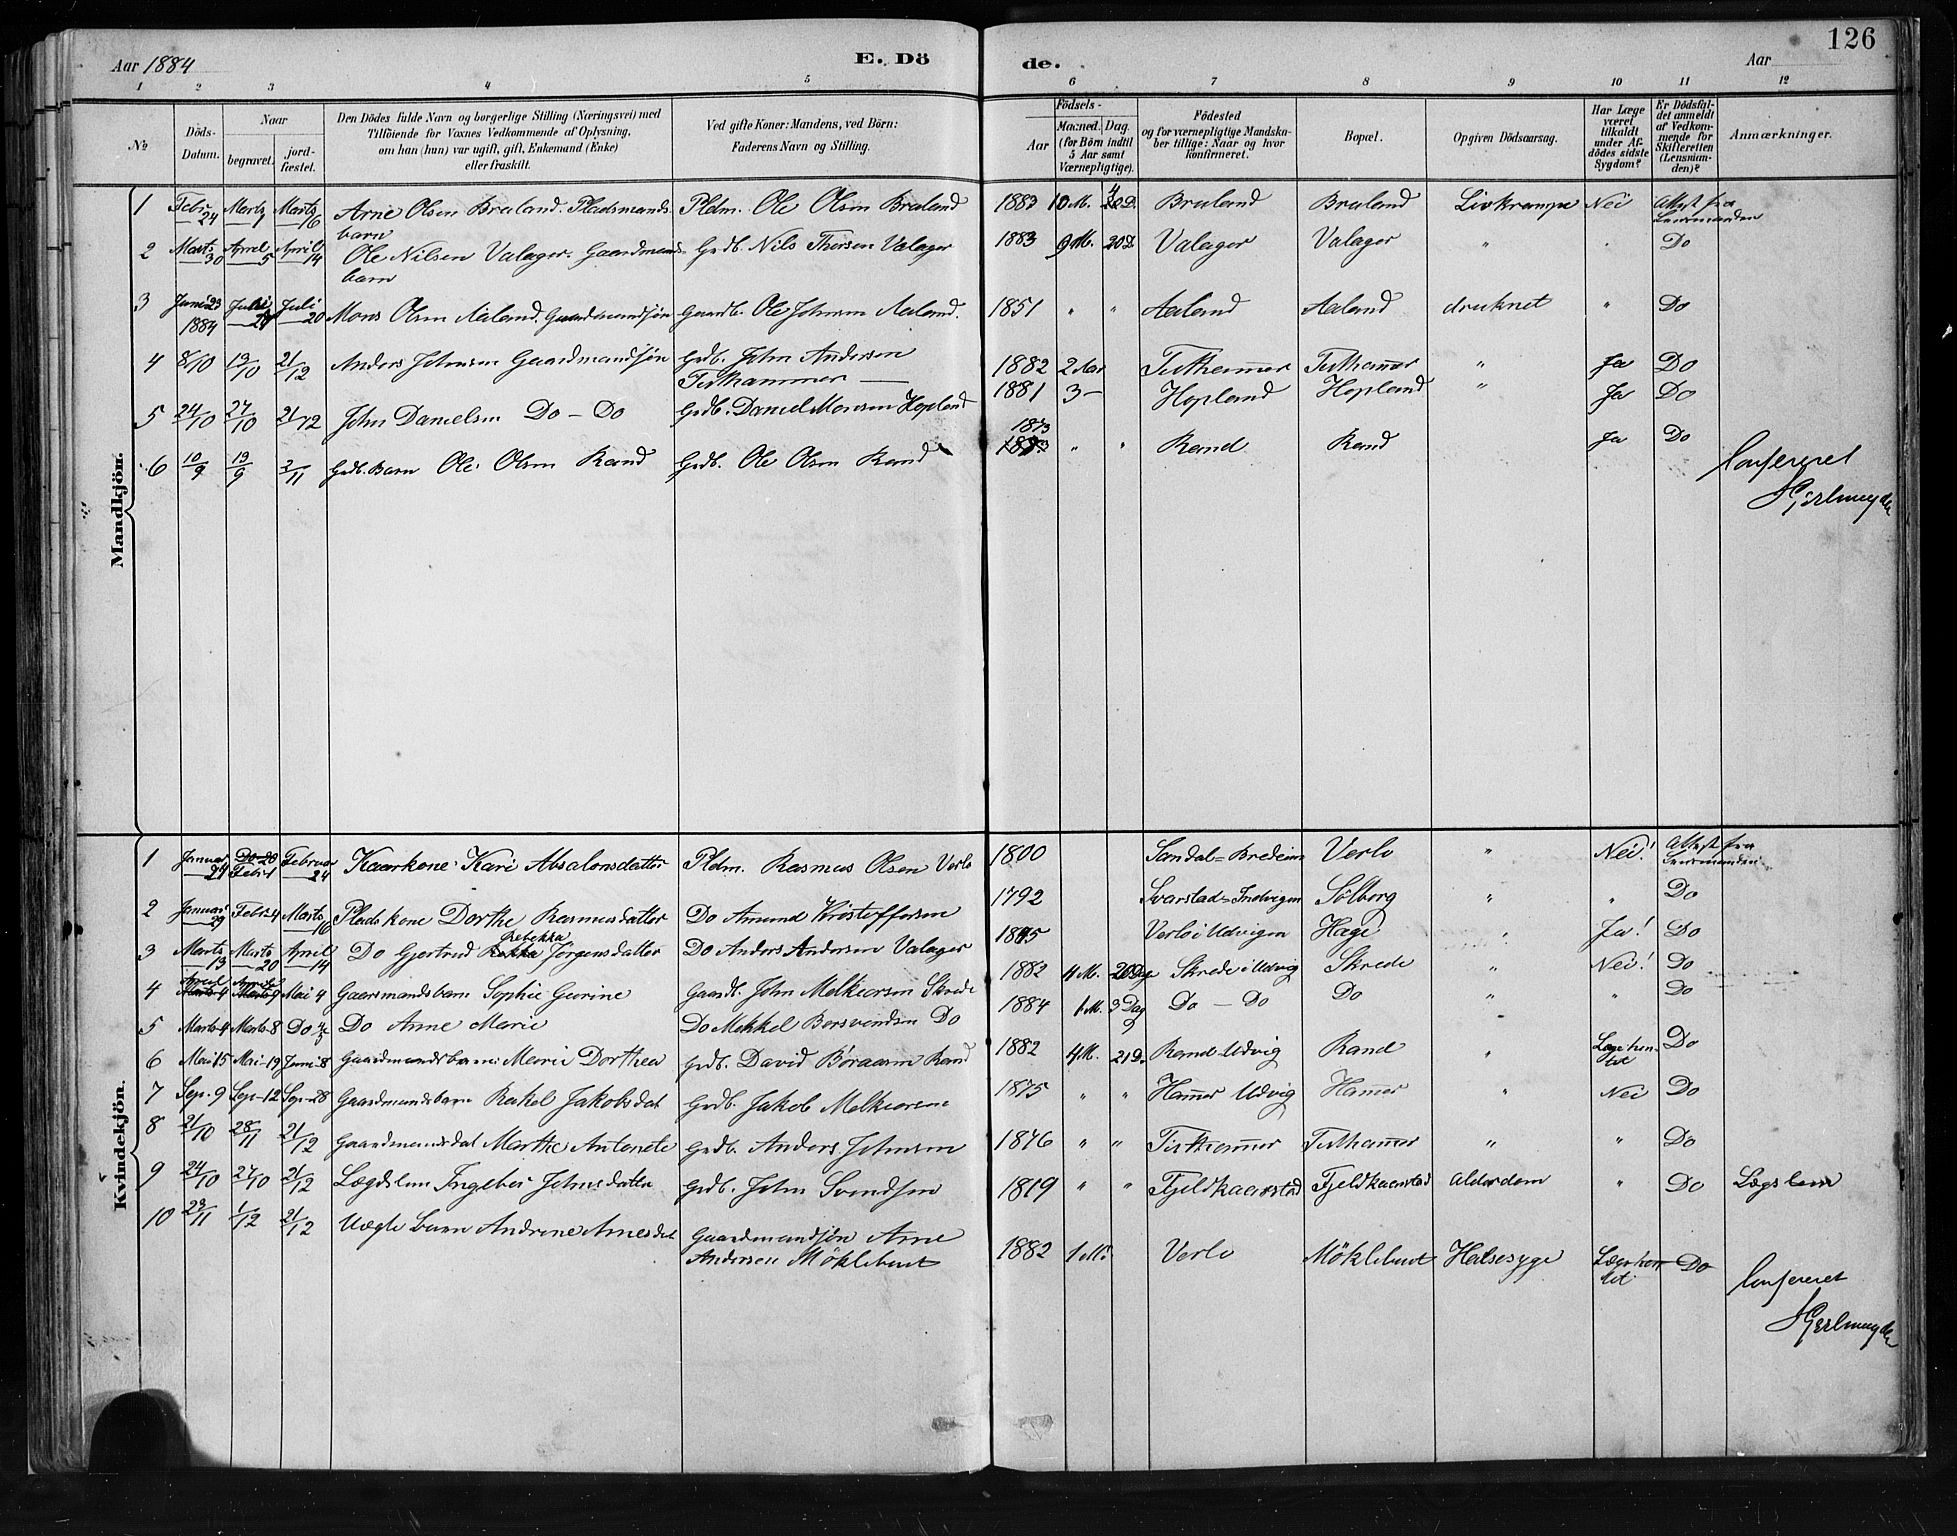 Aar 1884
E. Dö
de.
Aar
126
1 2 3 4 5 6 7 8 9 10 11 12
№
Döds-Datum.
Naar
begravet.
jord-fæstet.
Den Dödes fulde Navn og borgerlige Stilling (Næringsvei) med
Tilföiende for Voxnes Vedkommende af Oplysning,
om han (hun) var ugift, gift, Enkemand (Enke)
eller fraskilt.
Ved gifte Koner: Mandens, ved Börn:
Faderens Navn og Stilling.
Födsels-
Aar
Maaned. Dag.
(for Börn indtil
5 Aar samt
Værnepligtige).
Födested
og for værnepligtige Mandska-
ber tillige: Naar og hvor
konfirmeret.
Bopæl.
Opgiven Dödsaarsag.
Har Læge
været
tilkaldt
under Af-
dödes sidste
Sygdom?
Er Dödsfal-
det anmeldt
af Vedkom-
mende for
Skifteretten
(Lensman-
den)?
Anmærkninger.
Mandkjön.
1 Febr 24 Marts 9 Marts 16 Arne Olsen Bruland. Pladsmands- Pldm. Ole Olsen Bruland 1883 10 M. 4 D. Bruland Bruland Livkrampe Nei Attest fra
barn Lensmanden
2 Marts 30 April 5 April 14 Ole Nilsen Valager. Gaardmands- Grdb. Nils Thersen Valager 1883 9 M. 20 D Valager Valager " Do
barn
3 Juni 23 1884 Juli 20 Mons Olsen Aaland. Gaardmandsøn Gaardb. Ole Johnsen Aaland. 1851 " " Aaland Aaland druknet " Do
4 8/10 19/10 21/12 Anders Johnsen Gaardmandsøn Grdb. John Andersen 1882 2 Aar Tisthammer Tisthamer " Ja Do
Tisthammer
5 24/10 27/10 21/12 John Danielsen Do - Do Grdb. Daniel Monsen Hopland 1881 3 - Hopland Hopland " Ja Do
6 10/9 13/9 2/11 Grdb. Barn Ole Olsen Rand Grdb. Ole Olsen Rand 1873 " " Rand Rand Ja Do
Confereret
Kvindekjön.
1 Januar 24 Do 20 Febr 1 Februar 24 Kaarkone Kari Absalonsdatter Pldm. Rasmus Olsen Verlo 1800 Sandal = Bredeim Verlo " Nei! Attest fra
Lensmanden
2 Januar 29 Febr 4 Marts 16 Pladskone Dorthe Rasmusdatter Do Amund Kristoffersen 1792 Svarstad = Indvigen Sølborg " " Do
Rebekka
3 Marts 13 Marts 20 April 14 Do Gjertrud Jørgensdatter Do Anders Andersen Valager Verlo i Udvigen Hage Ja! Do
4 April 4 April 9 Mai 4 Gaarsmandsbarn Sophie Gurine Gaardb. John Melkiorsen Skrede 1882 4 M. 26 Dg Skrede i Udvig Skrede " Nei! Do
5 Marts 4 Marts 8 Do Do Anne Marie Do Mekkel Do 1884 1 M. 3 Dag Do - Do Do " " Do
6 Mai 15 Mai 19 Juni 8 Gaardmandsbarn Marie Dorthea Grdb. David Rand 1882 4 M. 21 D. Rand Udvig Rand " Læge hen- Do
tet
7 Sep. 9 Sep. 12 Sep. 28 Gaardmandsbarn Rakel Jakobsdat Grdb. Jakob Melkiorsen 1875 " " Hamer Udvig Hamer " Nei Do
8 21/10 28/11 21/12 Gaardmandsdat Marthe Antonete Grdb. Anders Johnsen 1876 " " Tisthammer Tisthamer " " Do
9 24/10 27/10 21/12 Lægdslem Ingebor Johnsdatter Grdb. John Svendsen 1819 " " Fjeldkaarstad Fjeldkaarstad Alderdom " Do Lægslem
10 29/11 1/12 21/12 Uægte Barn Andrine Arnesdat Gaardmandsøn Arne
Andersen Möklebust 1882 1 M. Verlo Möklebust Halsesyge Læge hen Do
tet
Confereret